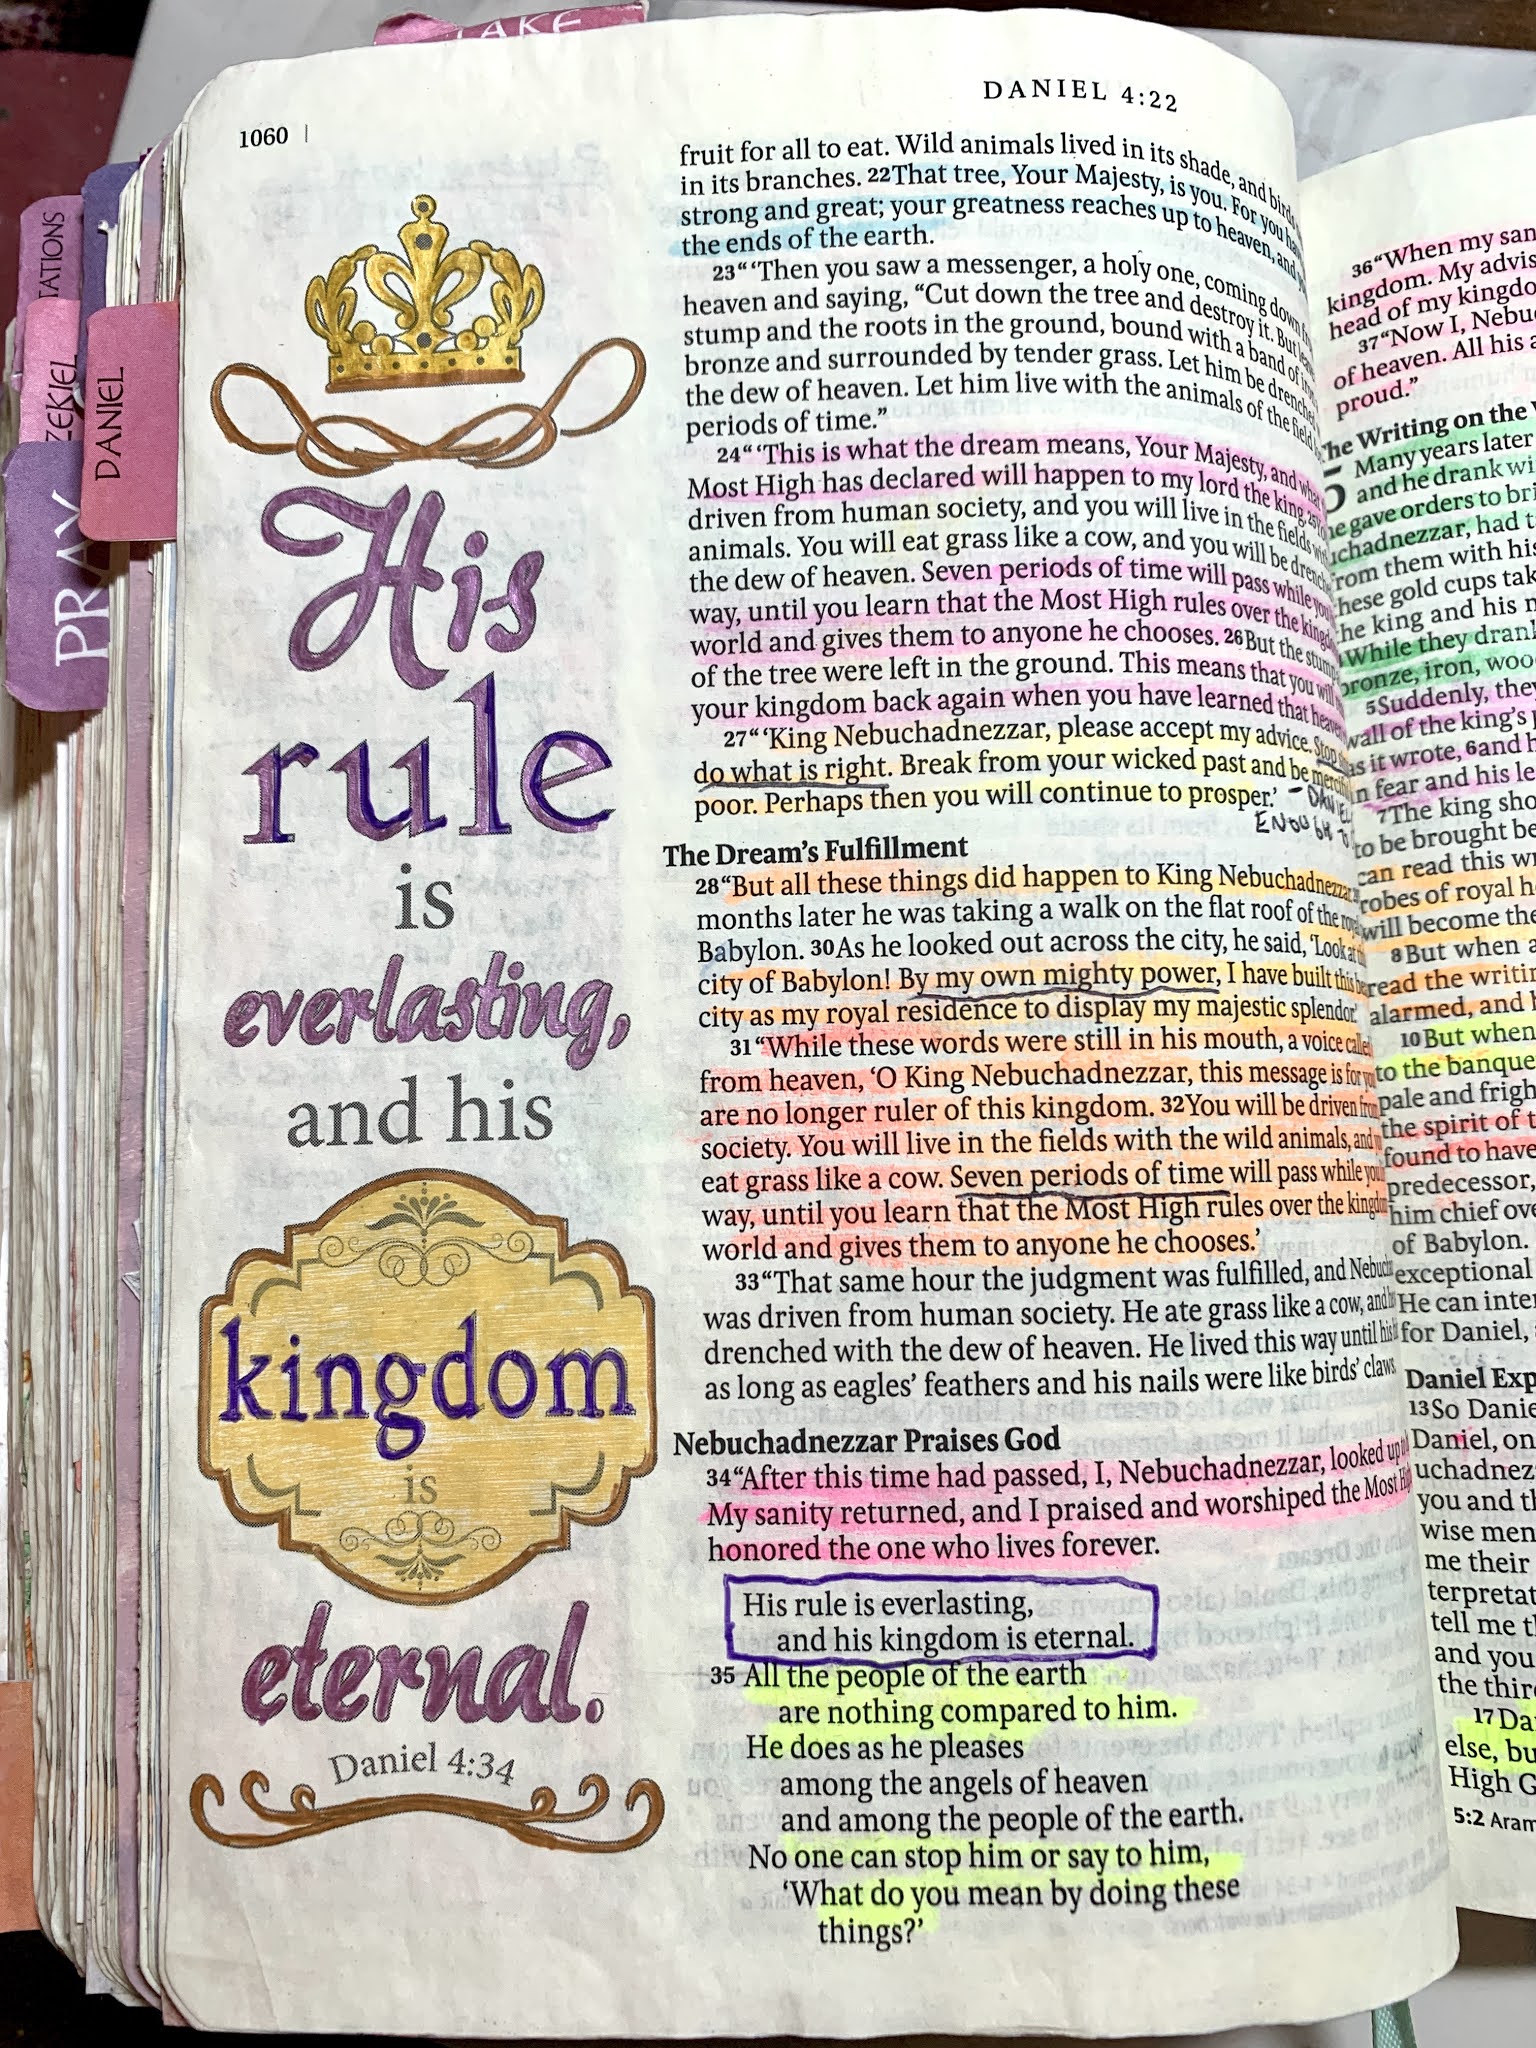 AKE
DANIEL 4:22
1060
TATIONS
ZEKIEL
DANIEL
PRAY
His
rule
is
everlasting,
and his
kingdom
is
eternal.
Daniel 4:34
fruit for all to eat. Wild animals lived in its shade, and birds
in its branches. 22That tree, Your Majesty, is you. For you
strong and great; your greatness reaches up to heaven, and
the ends of the earth.
23“‘Then you saw a messenger, a holy one, coming down
heaven and saying, “Cut down the tree and destroy it. But
stump and the roots in the ground, bound with a band of
bronze and surrounded by tender grass. Let him be drenched
the dew of heaven. Let him live with the animals of the field
periods of time.”
24“‘This is what the dream means, Your Majesty, and
Most High has declared will happen to my lord the king.
driven from human society, and you will live in the fields
animals. You will eat grass like a cow, and you will be
the dew of heaven. Seven periods of time will pass while
way, until you learn that the Most High rules over the
world and gives them to anyone he chooses. 26But the stump
of the tree were left in the ground. This means that you will
your kingdom back again when you have learned that
27“‘King Nebuchadnezzar, please accept my advice. Stop
do what is right. Break from your wicked past and be
poor. Perhaps then you will continue to prosper.’
ENOUGH
The Dream’s Fulfillment
28“But all these things did happen to King Nebuchadnezzar.
months later he was taking a walk on the flat roof of the
Babylon. 30As he looked out across the city, he said, ‘Look at
city of Babylon! By my own mighty power, I have built this
city as my royal residence to display my majestic splendor.’
31“While these words were still in his mouth, a voice
from heaven, ‘O King Nebuchadnezzar, this message is for
are no longer ruler of this kingdom. 32You will be driven from
society. You will live in the fields with the wild animals, and
eat grass like a cow. Seven periods of time will pass while
way, until you learn that the Most High rules over the
world and gives them to anyone he chooses.’
33“That same hour the judgment was fulfilled, and
was driven from human society. He ate grass like a cow, and
drenched with the dew of heaven. He lived this way until his
as long as eagles’ feathers and his nails were like birds’ claws.
Nebuchadnezzar Praises God
34“After this time had passed, I, Nebuchadnezzar, looked up
My sanity returned, and I praised and worshiped the Most
honored the one who lives forever.
His rule is everlasting,
and his kingdom is eternal.
35 All the people of the earth
are nothing compared to him.
He does as he pleases
among the angels of heaven
and among the people of the earth.
No one can stop him or say to him,
‘What do you mean by doing these
things?’
36“When my san
kingdom. My advis
head of my kingdo
37“Now I, Nebu
of heaven. All his a
proud.”
he Writing on the
5 Many years later
and he drank wi
he gave orders to bri
uchadnezzar, had
from them with his
hese gold cups tak
he king and his
While they drank
bronze, iron, woo
5Suddenly, they
wall of the king’s
as it wrote, 6and h
n fear and his le
7The king sho
to be brought be
can read this wr
robes of royal h
will become the
8But when a
read the writin
alarmed, and
10But when
to the banque
pale and frigh
the spirit of t
found to have
predecessor,
him chief ove
of Babylon.
exceptional
He can inter
for Daniel,
Daniel Exp
13So Danie
Daniel, on
uchadnez
you and t
wise men
me their
terpretat
tell me t
and you
the third
17Da
else, bu
High G
5:2 Aram